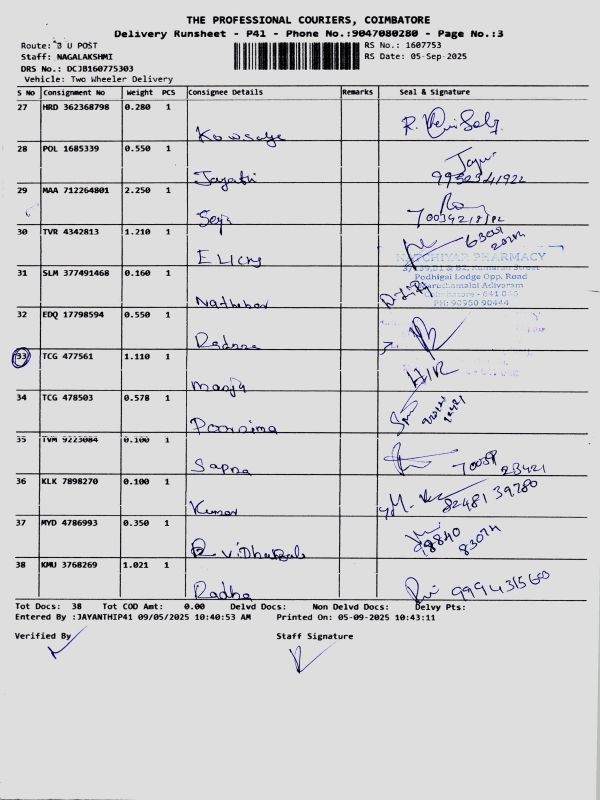 THE PROFESSIONAL COURIERS, COIMBATORE
Delivery Runsheet - P41 - Phone No.:9047080280 - Page No.:3
Route: B U POST
RS No.: 1607753
Staff: NAGALAKSHMI
RS Date: 05-Sep-2025
DRS No.: DCJB160775303
Vehicle: Two Wheeler Delivery
S No Consignment No Weight PCS Consignee Details Remarks Seal & Signature
27 HRD 362368798 0.280 1
Kowsalye
28 POL 1685339 0.550 1
Jayathi
29 MAA 712264801 2.250 1
30 TVR 4342813 1.210 1
NATCHIYAR PHARMACY
31 SLM 377491468 0.160 1
Podhigai Lodge Opp. Road
Maruthamalai Adivaram
Coimbatore - 641 046
PH: 90950 90444
32 EDQ 17798594 0.550 1
33 TCG 477561 1.110 1
Manju
34 TCG 478503 0.578 1
Poornima
35 TVM 9223084 0.100 1
Sapna
36 KLK 7898270 0.100 1
82481 39780
Kumar
37 MYD 4786993 0.350 1
98840
83074
38 KMU 3768269 1.021 1
Radha
Tot Docs: 38 Tot COD Amt: 0.00 Delvd Docs: Non Delvd Docs: Delvy Pts:
Entered By :JAYANTHIP41 09/05/2025 10:40:53 AM Printed On: 05-09-2025 10:43:11
Verified By Staff Signature